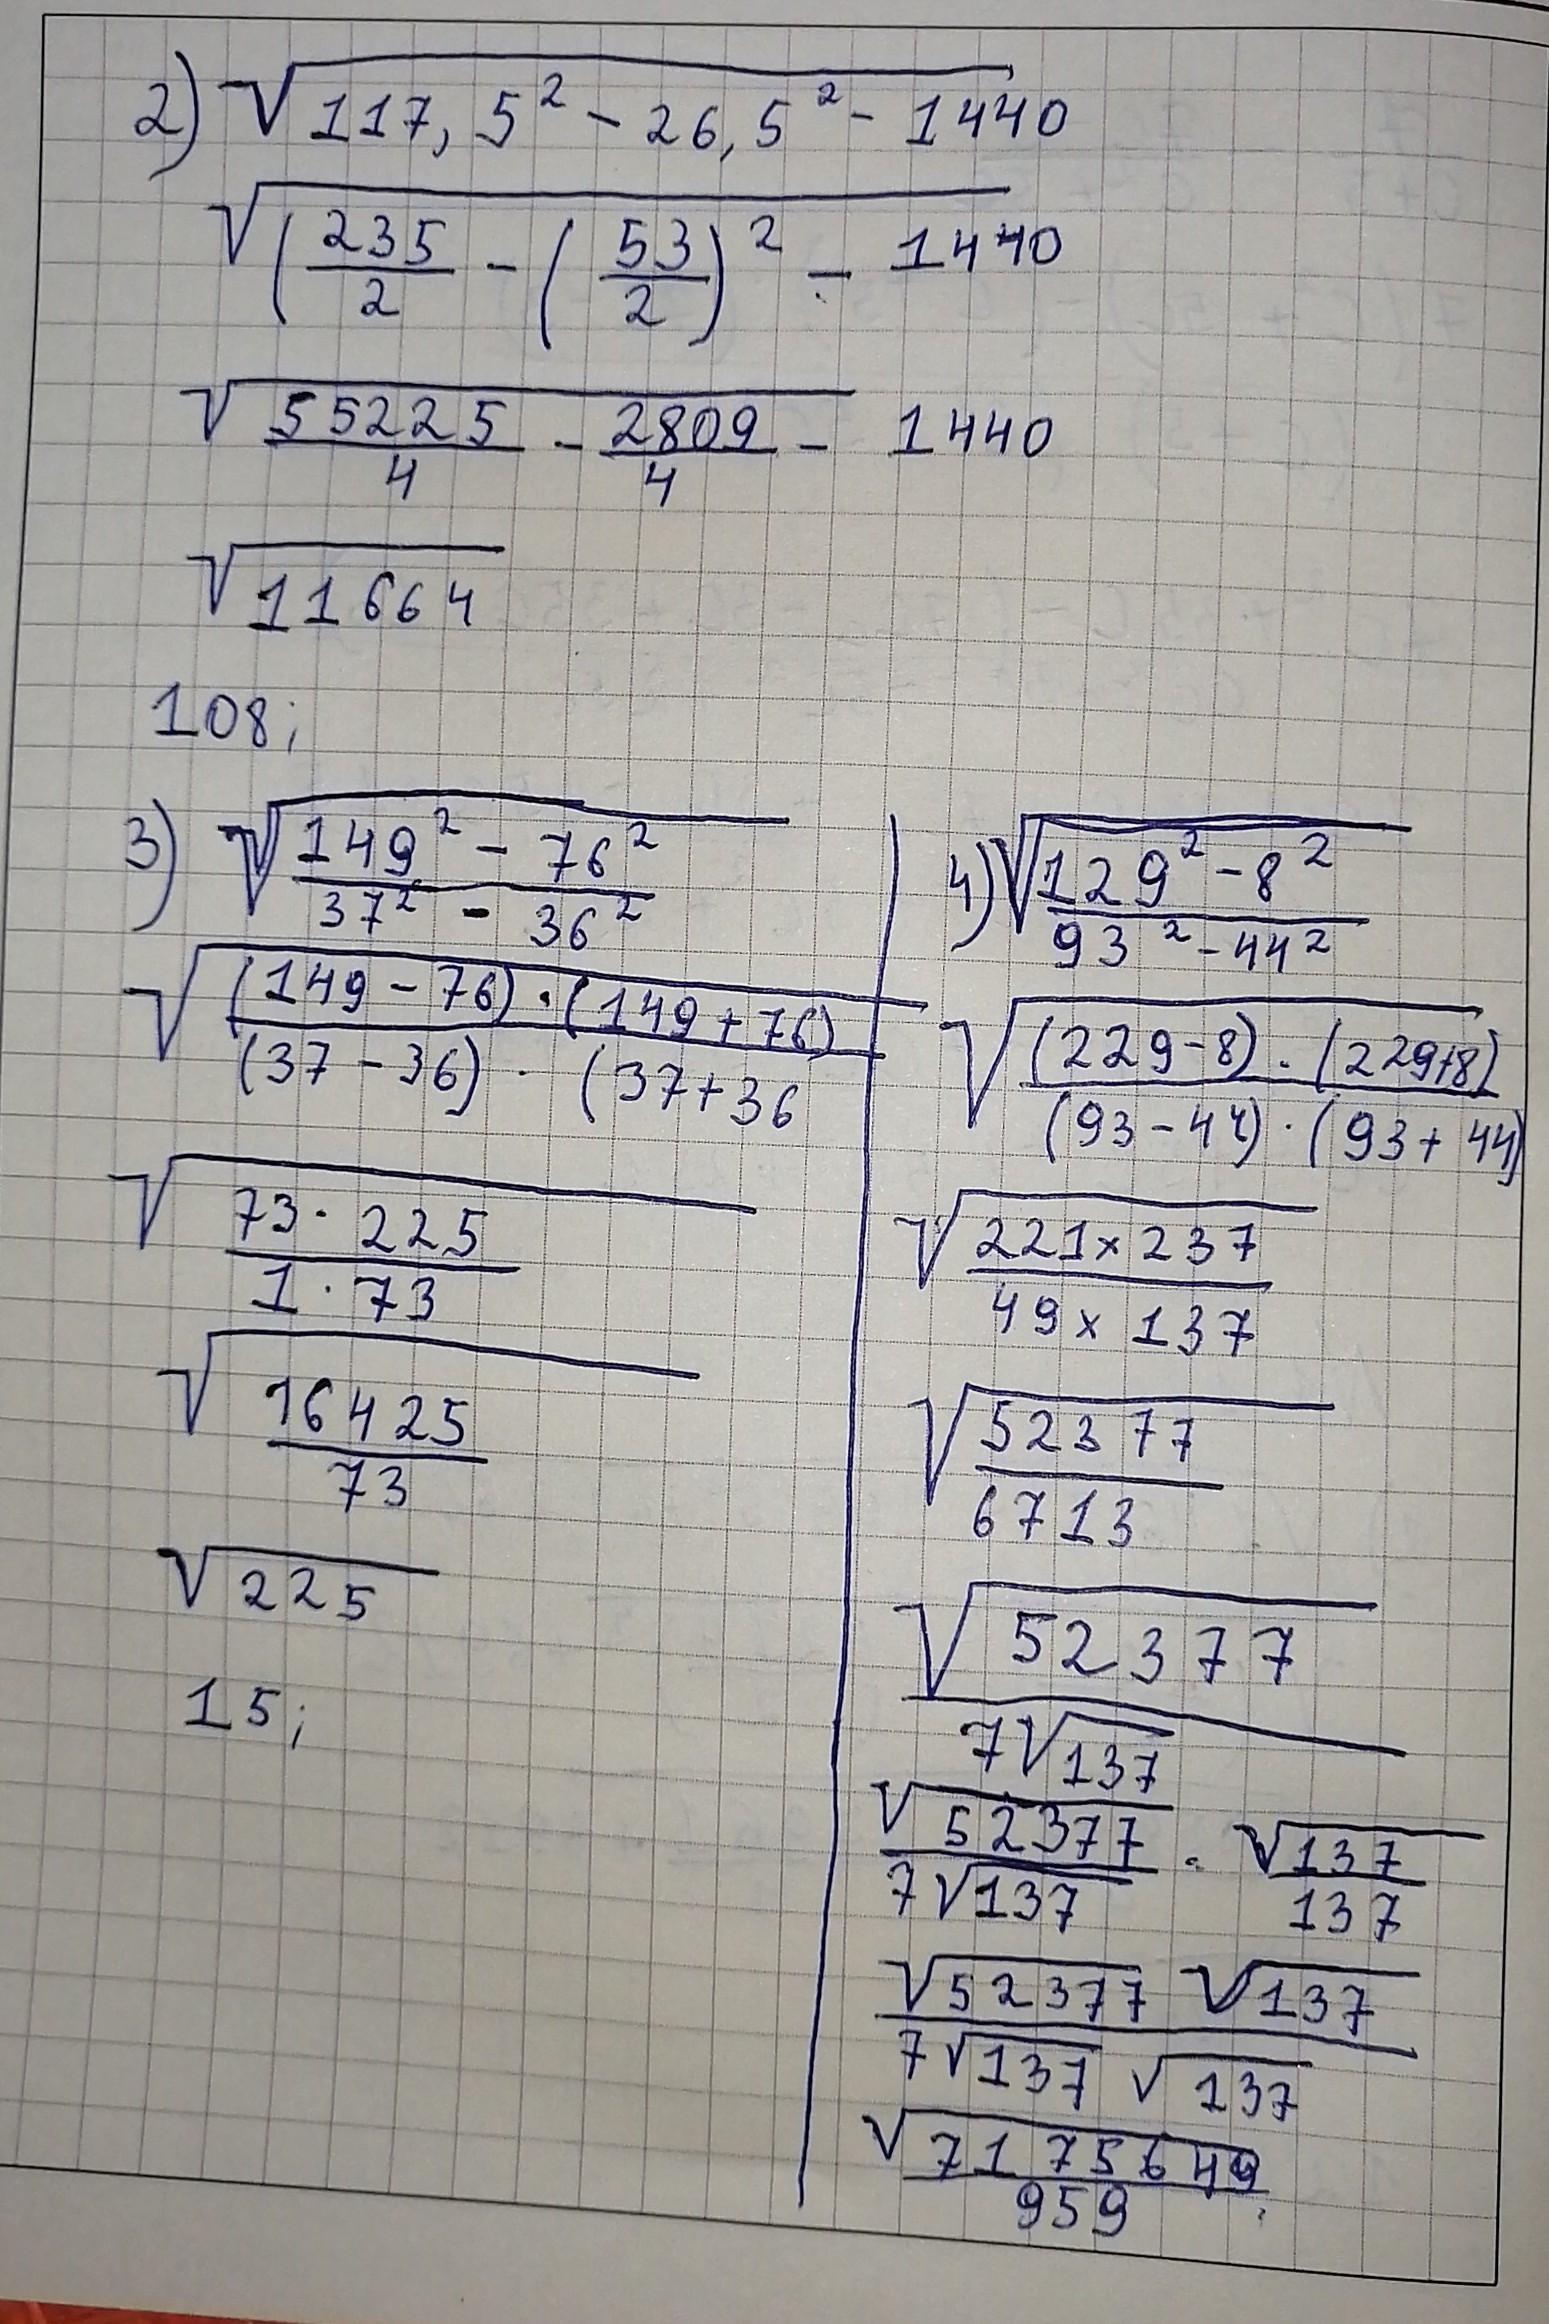 2) √117,5² - 26,5² - 1440
√(235/2 - (53/2)² - 1440
√55225/4 - 2809/4 - 1440
√11664
108;
3) √149² - 76² / 37² - 36²
√(149 - 76) · (149 + 76) / (37 - 36) · (37 + 36
√73 · 225 / 1 · 73
√16425 / 73
√225
15;
4) √129² - 8² / 93² - 44²
√(229 - 8) · (229 + 8) / (93 - 44) · (93 + 44)
√221 × 237 / 49 × 137
√52377 / 6713
√52377 / 7√137
√52377 / 7√137 · √137 / 137
√52377 √137 / 7√137 √137
√7175649 / 959;